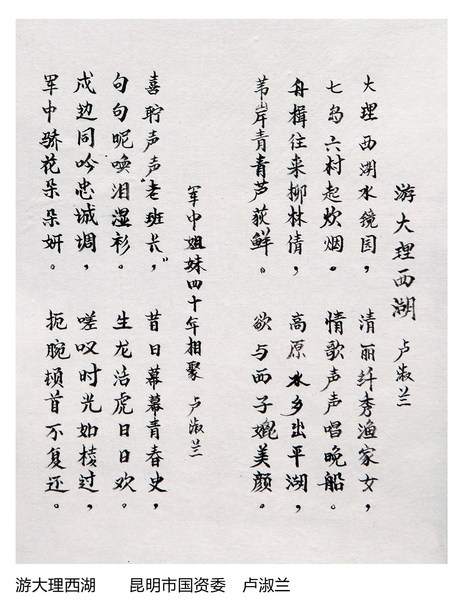 游大理西湖 卢淑兰
大理西湖水镜园，
七岛六村起炊烟。
舟楫往来柳林倩，
苇岸青青芦荻鲜。
清丽纤秀渔家女，
情歌声声唱晚船。
高原水乡出平湖，
欲与西子媲美颜。
军中姐妹四十年相聚 卢淑兰
喜聍声声“老班长，”
句句昵唤泪湿衫。
戍边同吟忠诚调，
军中骄花朵朵妍。
昔日幕幕青春史，
生龙活虎日日欢。
嗟叹时光如梭过，
扼腕顿首不复还。
游大理西湖 昆明市国资委 卢淑兰